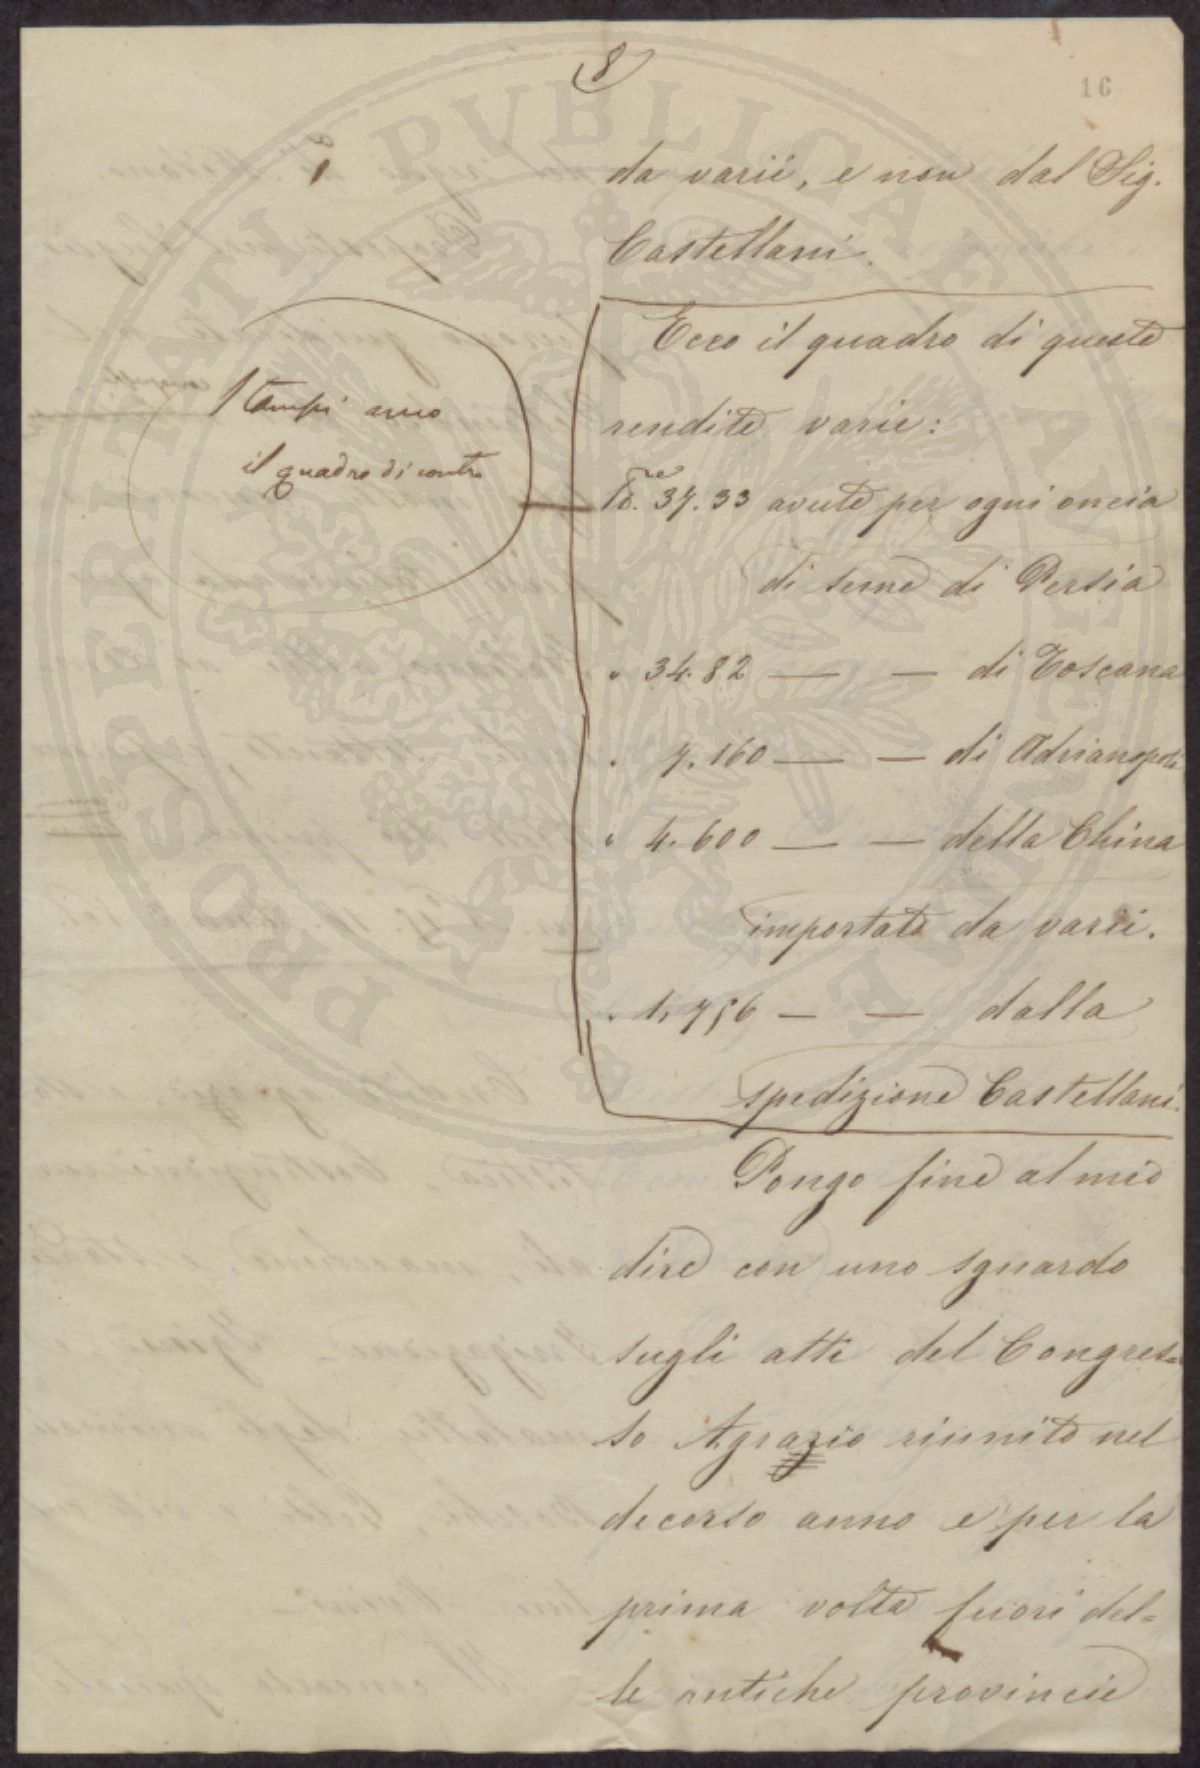 8
16
da varii, e non dal Sig.
Castellani.
Ecco il quadro di queste
rendite varie:
37.33 avute per ogni oncia
di seme di Persia
" 34.82 — — di Toscana
" 7.160 — — di Adrianopoli
" 4.600 — — della China
importate da varii.
" 1,756 — — dalla
spedizione Castellani.
Pongo fine al mio
dire con uno sguardo
sugli atti del Congres=
so Agrario riunito nel
decorso anno e per la
prima volta fuori del=
le antiche provincie
Stampi
il quadro di contro
PROSPERITATI PUBLICAE